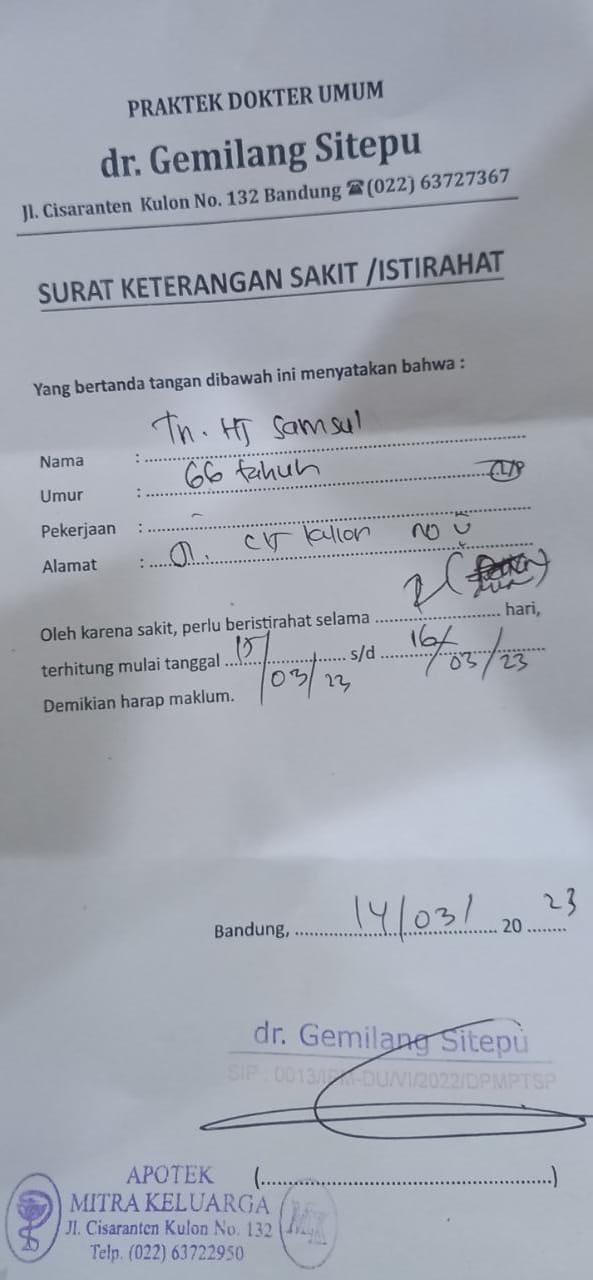 PRAKTEK DOKTER UMUM
dr. Gemilang Sitepu
Jl. Cisaranten Kulon No. 132 Bandung ☎(022) 63727367
SURAT KETERANGAN SAKIT /ISTIRAHAT
Yang bertanda tangan dibawah ini menyatakan bahwa :
Nama : Tn. Hj Samsul
Umur : 66 tahun L/P
Pekerjaan : -
Alamat : Jl. no
Oleh karena sakit, perlu beristirahat selama 2 ( ) hari,
terhitung mulai tanggal 15/03/23 s/d 16/03/23
Demikian harap maklum.
Bandung, 14/03/ 20 23
dr. Gemilang Sitepu
SIP : 0013/IPM-DU/VI/2022/DPMPTSP
(..........)
APOTEK
MITRA KELUARGA
Jl. Cisaranten Kulon No. 132
Telp. (022) 63722950